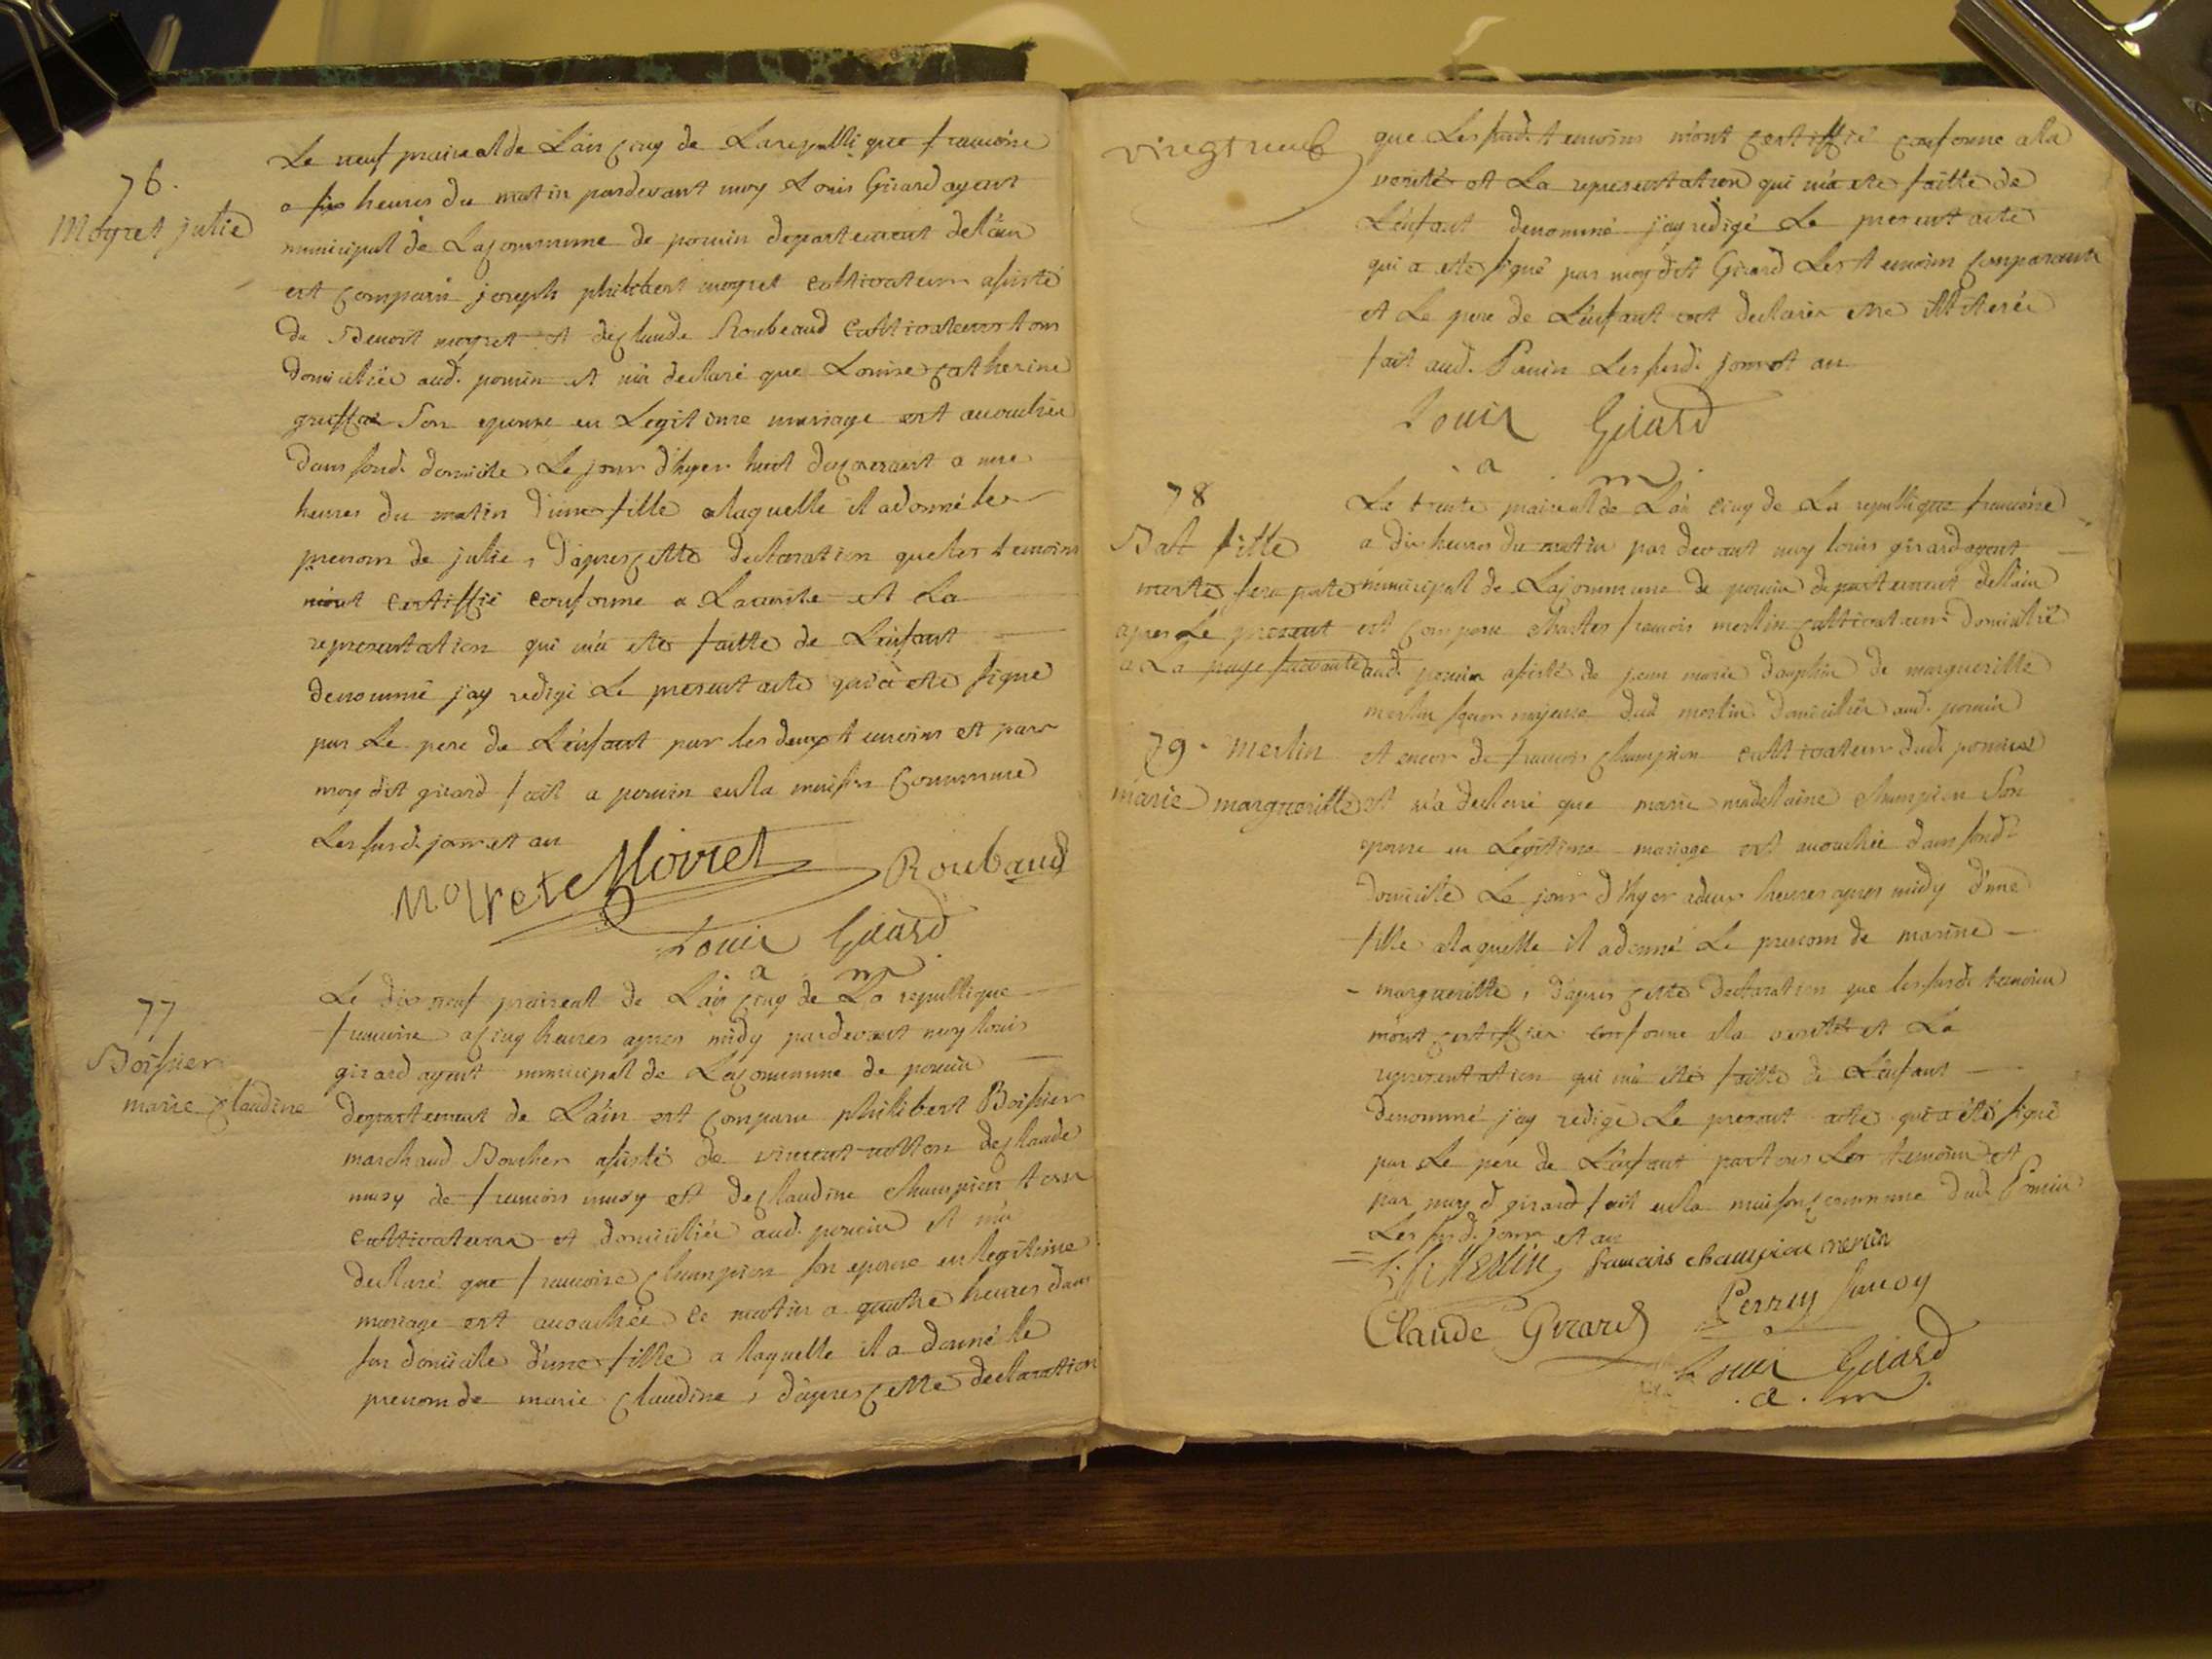 76.
Moyret julie
Le neuf praireal de L'an cinq de La republique francoise
a six heures du matin pardevant moy Louis Girard agent
municipal de La commune de pouin departement de L'ain
est comparu joseph philibert moyret cultivateur assisté
de Benoit moyret et de claude Roubeaud Cultivateurs tous
domiciliés aud. pouin et m'a declaré que Louise catherine
son epouse en Legitime mariage est accouchée
dans sond. domicile Le jour d'hyer huit du courant a
heures du matin d'une fille a laquelle il a donné le
prenom de julie, d'apres cette declaration que les temoins
m'ont certiffié conforme a La verite et La
representation qui m'a ete faitte de L'enfant
denommé j'ay redigé Le present acte qui a ete signe
par Le pere de L'enfant par les deux temoins et par
moy dit girard fait a pouin en la maison Commune
Les susd. jour et an
Moyret Moiret Roubaud
Louis Girard
a m.
77
Boissier
marie Claudine
Le dix neuf praireal de L'an cinq de La republique
francoise a cinq heures apres midy pardevant moy louis
girard agent municipal de La commune de pouin
departement de L'ain est comparu philibert Boissier
marchand Boucher assisté de vincent de claude
musy de francois musy et de claudine champion tous
cultivateurs et domiciliés aud. pouin et m'a
declaré que francoise champion son epouse en legitime
mariage est accouchée ce matin a quatre heures dans
son domicile d'une fille a laquelle il a donné le
prenom de marie Claudine, d'apres cette declaration
vingt neuf
que Les susd. temoins m'ont certiffié conforme a la
verité et La representation qui m'a ete faitte de
L'enfant denommé j'ay redigé Le present acte
qui a ete signé par moy dit Girard Les temoins comparants
et Le pere de L'enfant ont declarés etre illiterés
fait aud. Pouin Les susd. jour et an
Louis Girard
a m.
78
Bal fille
morte sera porté
apres Le present
a La page suivante
79. merlin
marie margueritte
Le trente praireal de L'an cinq de La republique francoise
a dix heures du matin par devant moy louis girard agent
municipal de La commune de pouin departement de L'ain
est comparu charles francois merlin cultivateur domicilié
aud. pouin assisté de jean marie dauphin de margueritte
merlin soeur majeure dud merlin domiciliés aud. pouin
et encor de francois champion cultivateur dud. pouin
et m'a declaré que marie madelaine champion son
epouse en Legitime mariage est accouchée dans sond.
domicile Le jour d'hyer a deux heures apres midy d'une
fille a laquelle il a donné Le prenom de marine
margueritte, d'apres cette declaration que les susd. temoins
m'ont certiffiés conforme a la verité et La
representation qui m'a eté faitte de L'enfant
denommé j'ay redigé Le present acte qui a été signé
par Le pere de L'enfant par tous Les temoins et
par moy d girard fait en la maison commune dud. Pouin
Les susd. jour et an
Merlin francois champion merlin
Claude Girard Perrin Savoy
Louis Girard
a. m.